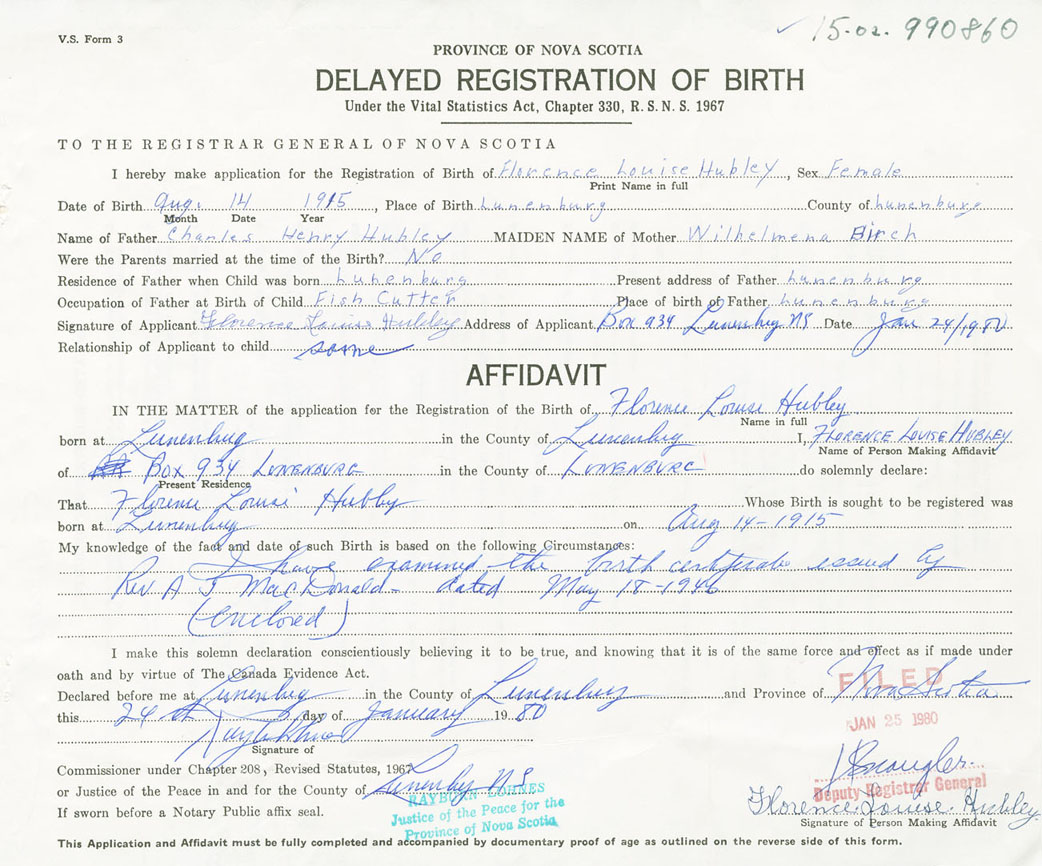 V.S. Form 3
15-02. 990860
PROVINCE OF NOVA SCOTIA
DELAYED REGISTRATION OF BIRTH
Under the Vital Statistics Act, Chapter 330, R. S. N. S. 1967
TO THE REGISTRAR GENERAL OF NOVA SCOTIA
I hereby make application for the Registration of Birth of Florence Louise Hubley, Sex Female
Print Name in full
Date of Birth Aug. 14 1915, Place of Birth Lunenburg County of Lunenburg
Month Date Year
Name of Father Charles Henry Hubley MAIDEN NAME of Mother Wilhelmena Birch
Were the Parents married at the time of the Birth? No
Residence of Father when Child was born Lunenburg Present address of Father Lunenburg
Occupation of Father at Birth of Child Fish Cutter Place of birth of Father Lunenburg
Signature of Applicant Florence Louise Hubley Address of Applicant Box 934 Lunenburg NS Date Jan 24/1980
Relationship of Applicant to child same
AFFIDAVIT
IN THE MATTER of the application for the Registration of the Birth of Florence Louise Hubley
Name in full
born at Lunenburg in the County of Lunenburg I, FLORENCE LOUISE HUBLEY
Name of Person Making Affidavit
of Box 934 LUNENBURG in the County of LUNENBURG do solemnly declare:
Present Residence
That Florence Louise Hubley Whose Birth is sought to be registered was
born at Lunenburg on Aug 14-1915
My knowledge of the fact and date of such Birth is based on the following Circumstances:
I have examined the birth certificate issued by
Rev. A J MacDonald - dated May 18-1946
(enclosed)
I make this solemn declaration conscientiously believing it to be true, and knowing that it is of the same force and effect as if made under
oath and by virtue of The Canada Evidence Act.
FILED
Declared before me at Lunenburg in the County of Lunenburg and Province of Nova Scotia
this 24th day of January 1980
JAN 25 1980
Signature of
Commissioner under Chapter 208, Revised Statutes, 1967
or Justice of the Peace in and for the County of Lunenburg NS
RAYBURN LOHNES
Justice of the Peace for the
Province of Nova Scotia
If sworn before a Notary Public affix seal.
Deputy Registrar General
Florence Louise Hubley
Signature of Person Making Affidavit
This Application and Affidavit must be fully completed and accompanied by documentary proof of age as outlined on the reverse side of this form.